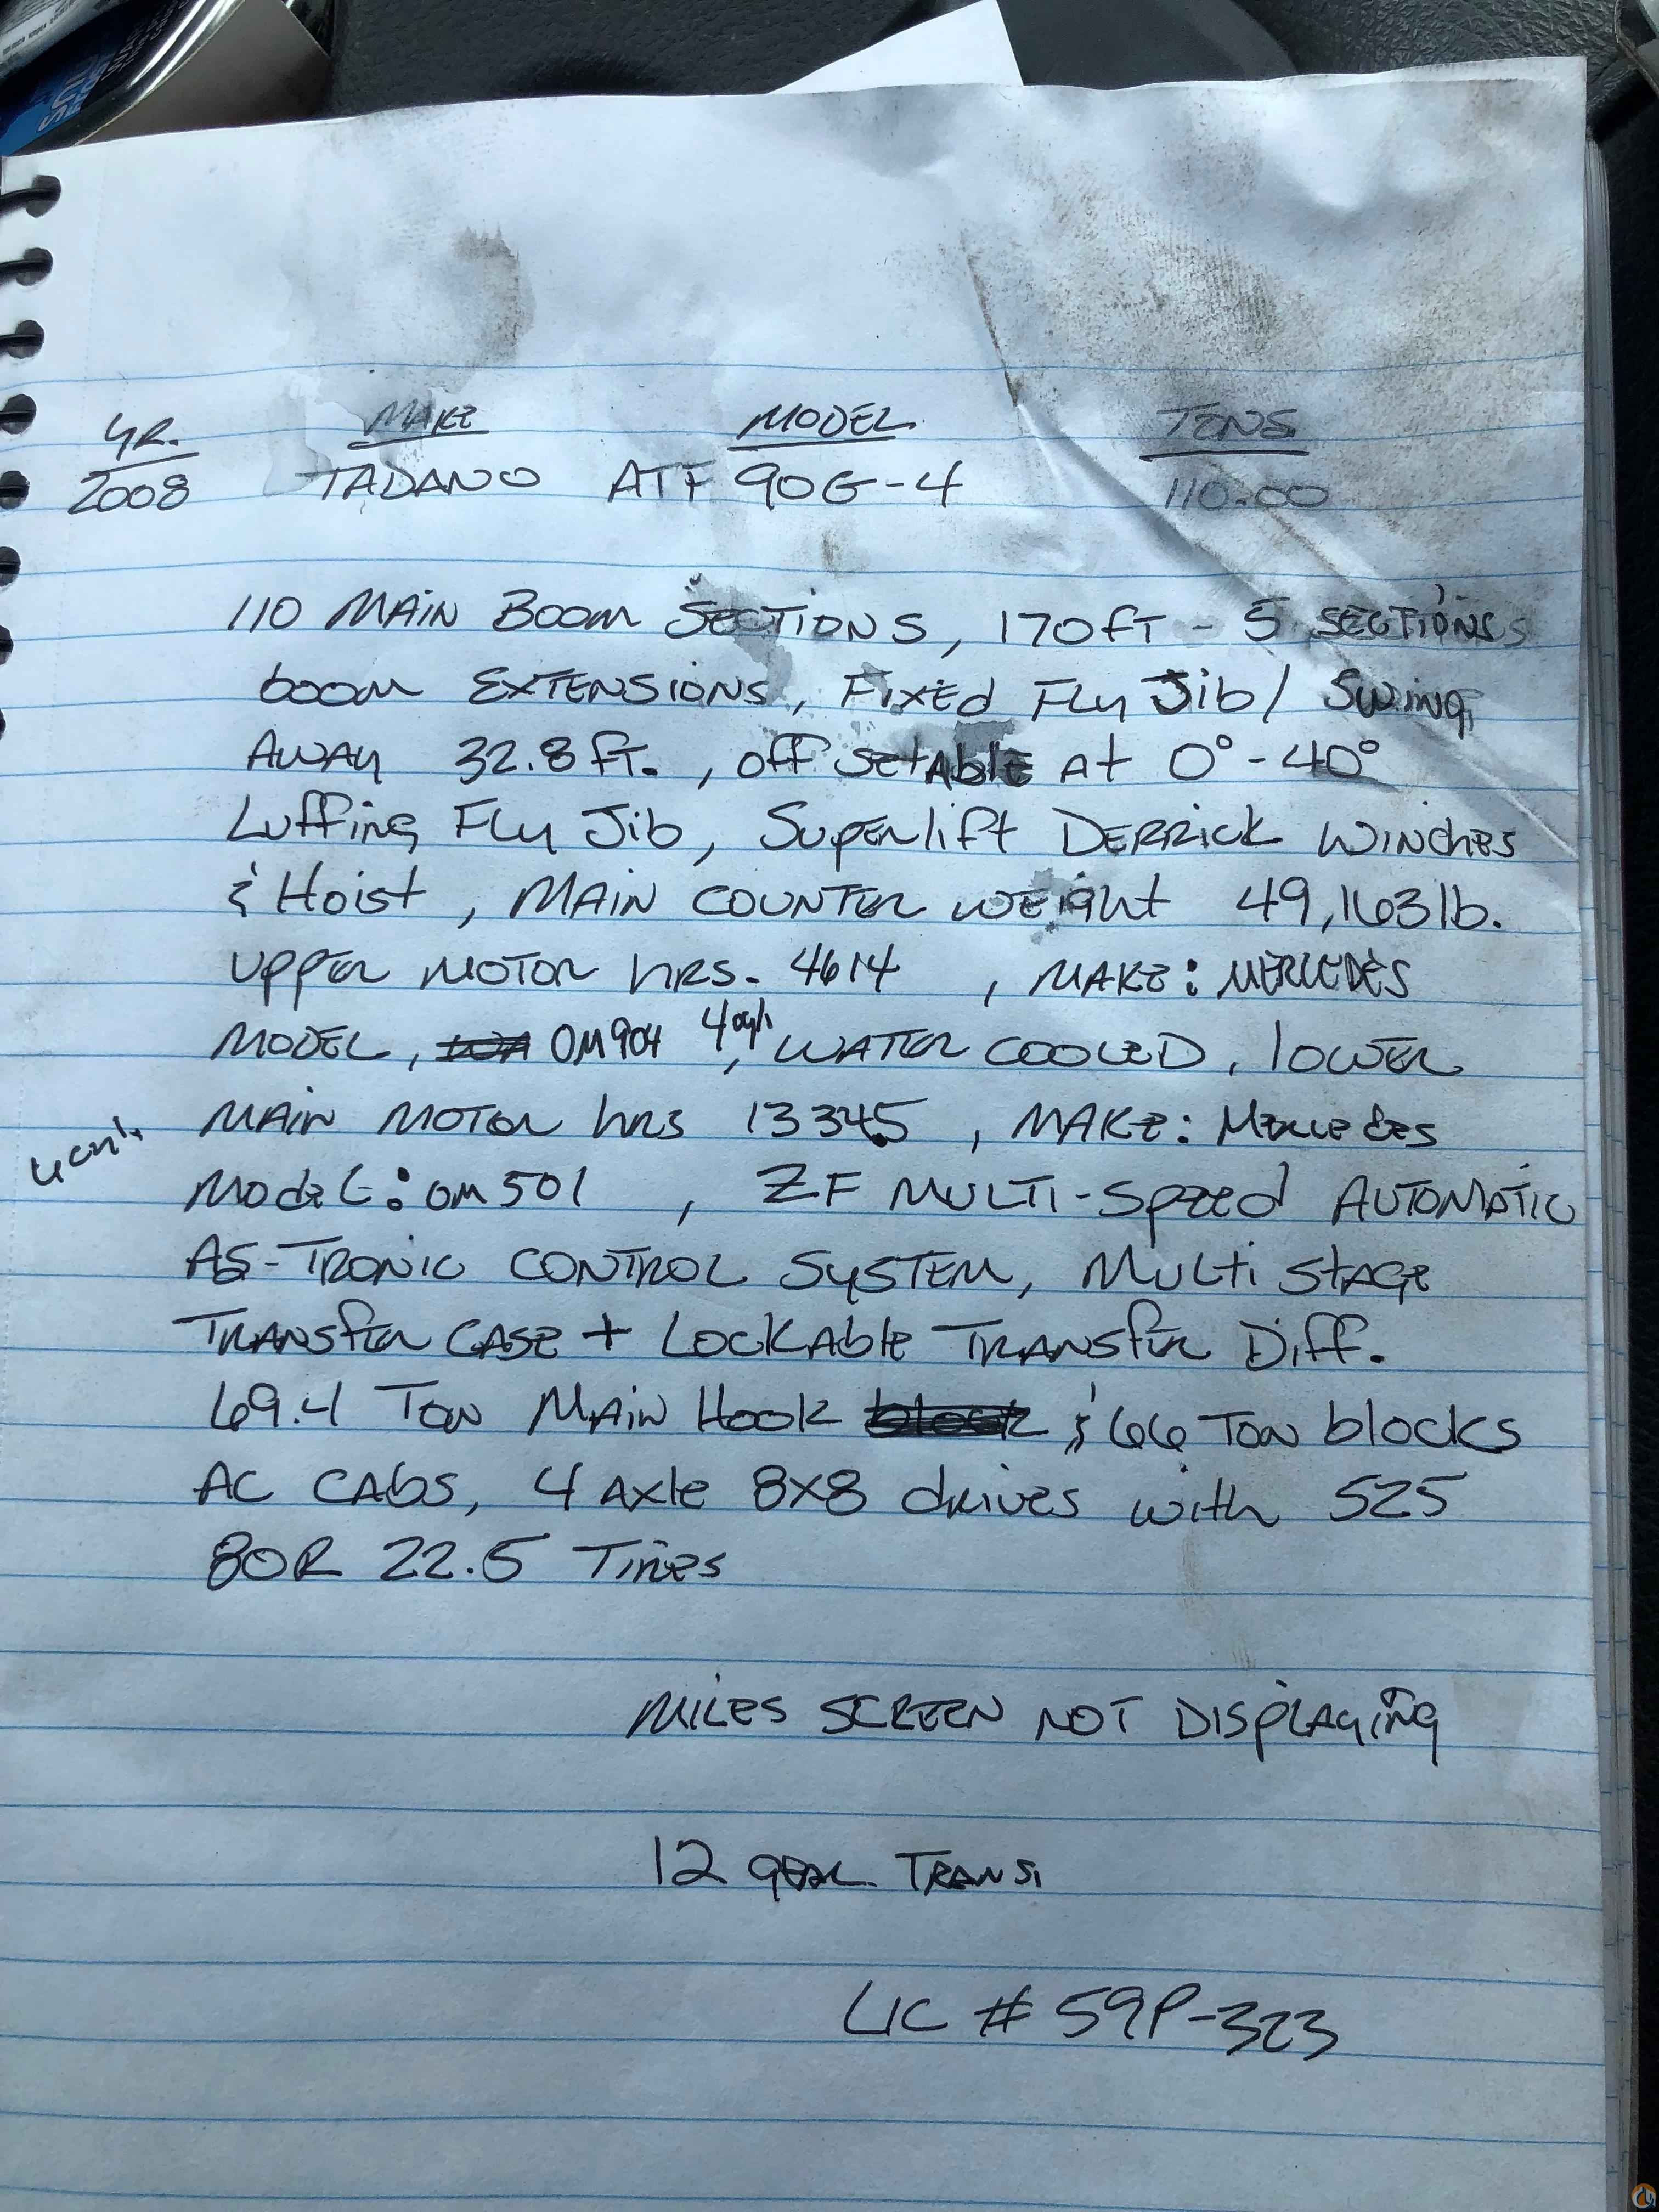 YR. MAKE MODEL TONS
2008 TADANO ATF 90G-4 110.00
110 MAIN BOOM SECTIONS, 170 FT - 5 SECTIONS
boom EXTENSIONS, FIXED FLY Jib/ Swing
AWAY 32.8 ft., offsetAble At 0° - 40°
Luffing Fly Jib, Superlift DERRICK WINCHES
& Hoist, MAIN COUNTER WEIGHT 49,163 lb.
UPPER MOTOR hrs. 4614, MAKE: MERCEDES
MODEL, OM904 4 cyl, WATER COOLED, LOWER
MAIN MOTOR hrs 13345, MAKE: Mercedes
Model: OM 501, ZF MULTI-Speed AUTOMATIC
AS-TRONIC CONTROL SYSTEM, Multi STAGE
TRANSfer CASE + LOCKAble TRANSfer Diff.
69.4 TON MAIN Hook & 66 TON blocks
AC CAbS, 4 AXle 8x8 drives with 525
80R 22.5 Tires
MILES SCREEN NOT DISPLAYING
12 gear TRANS.
LIC # 59P-323